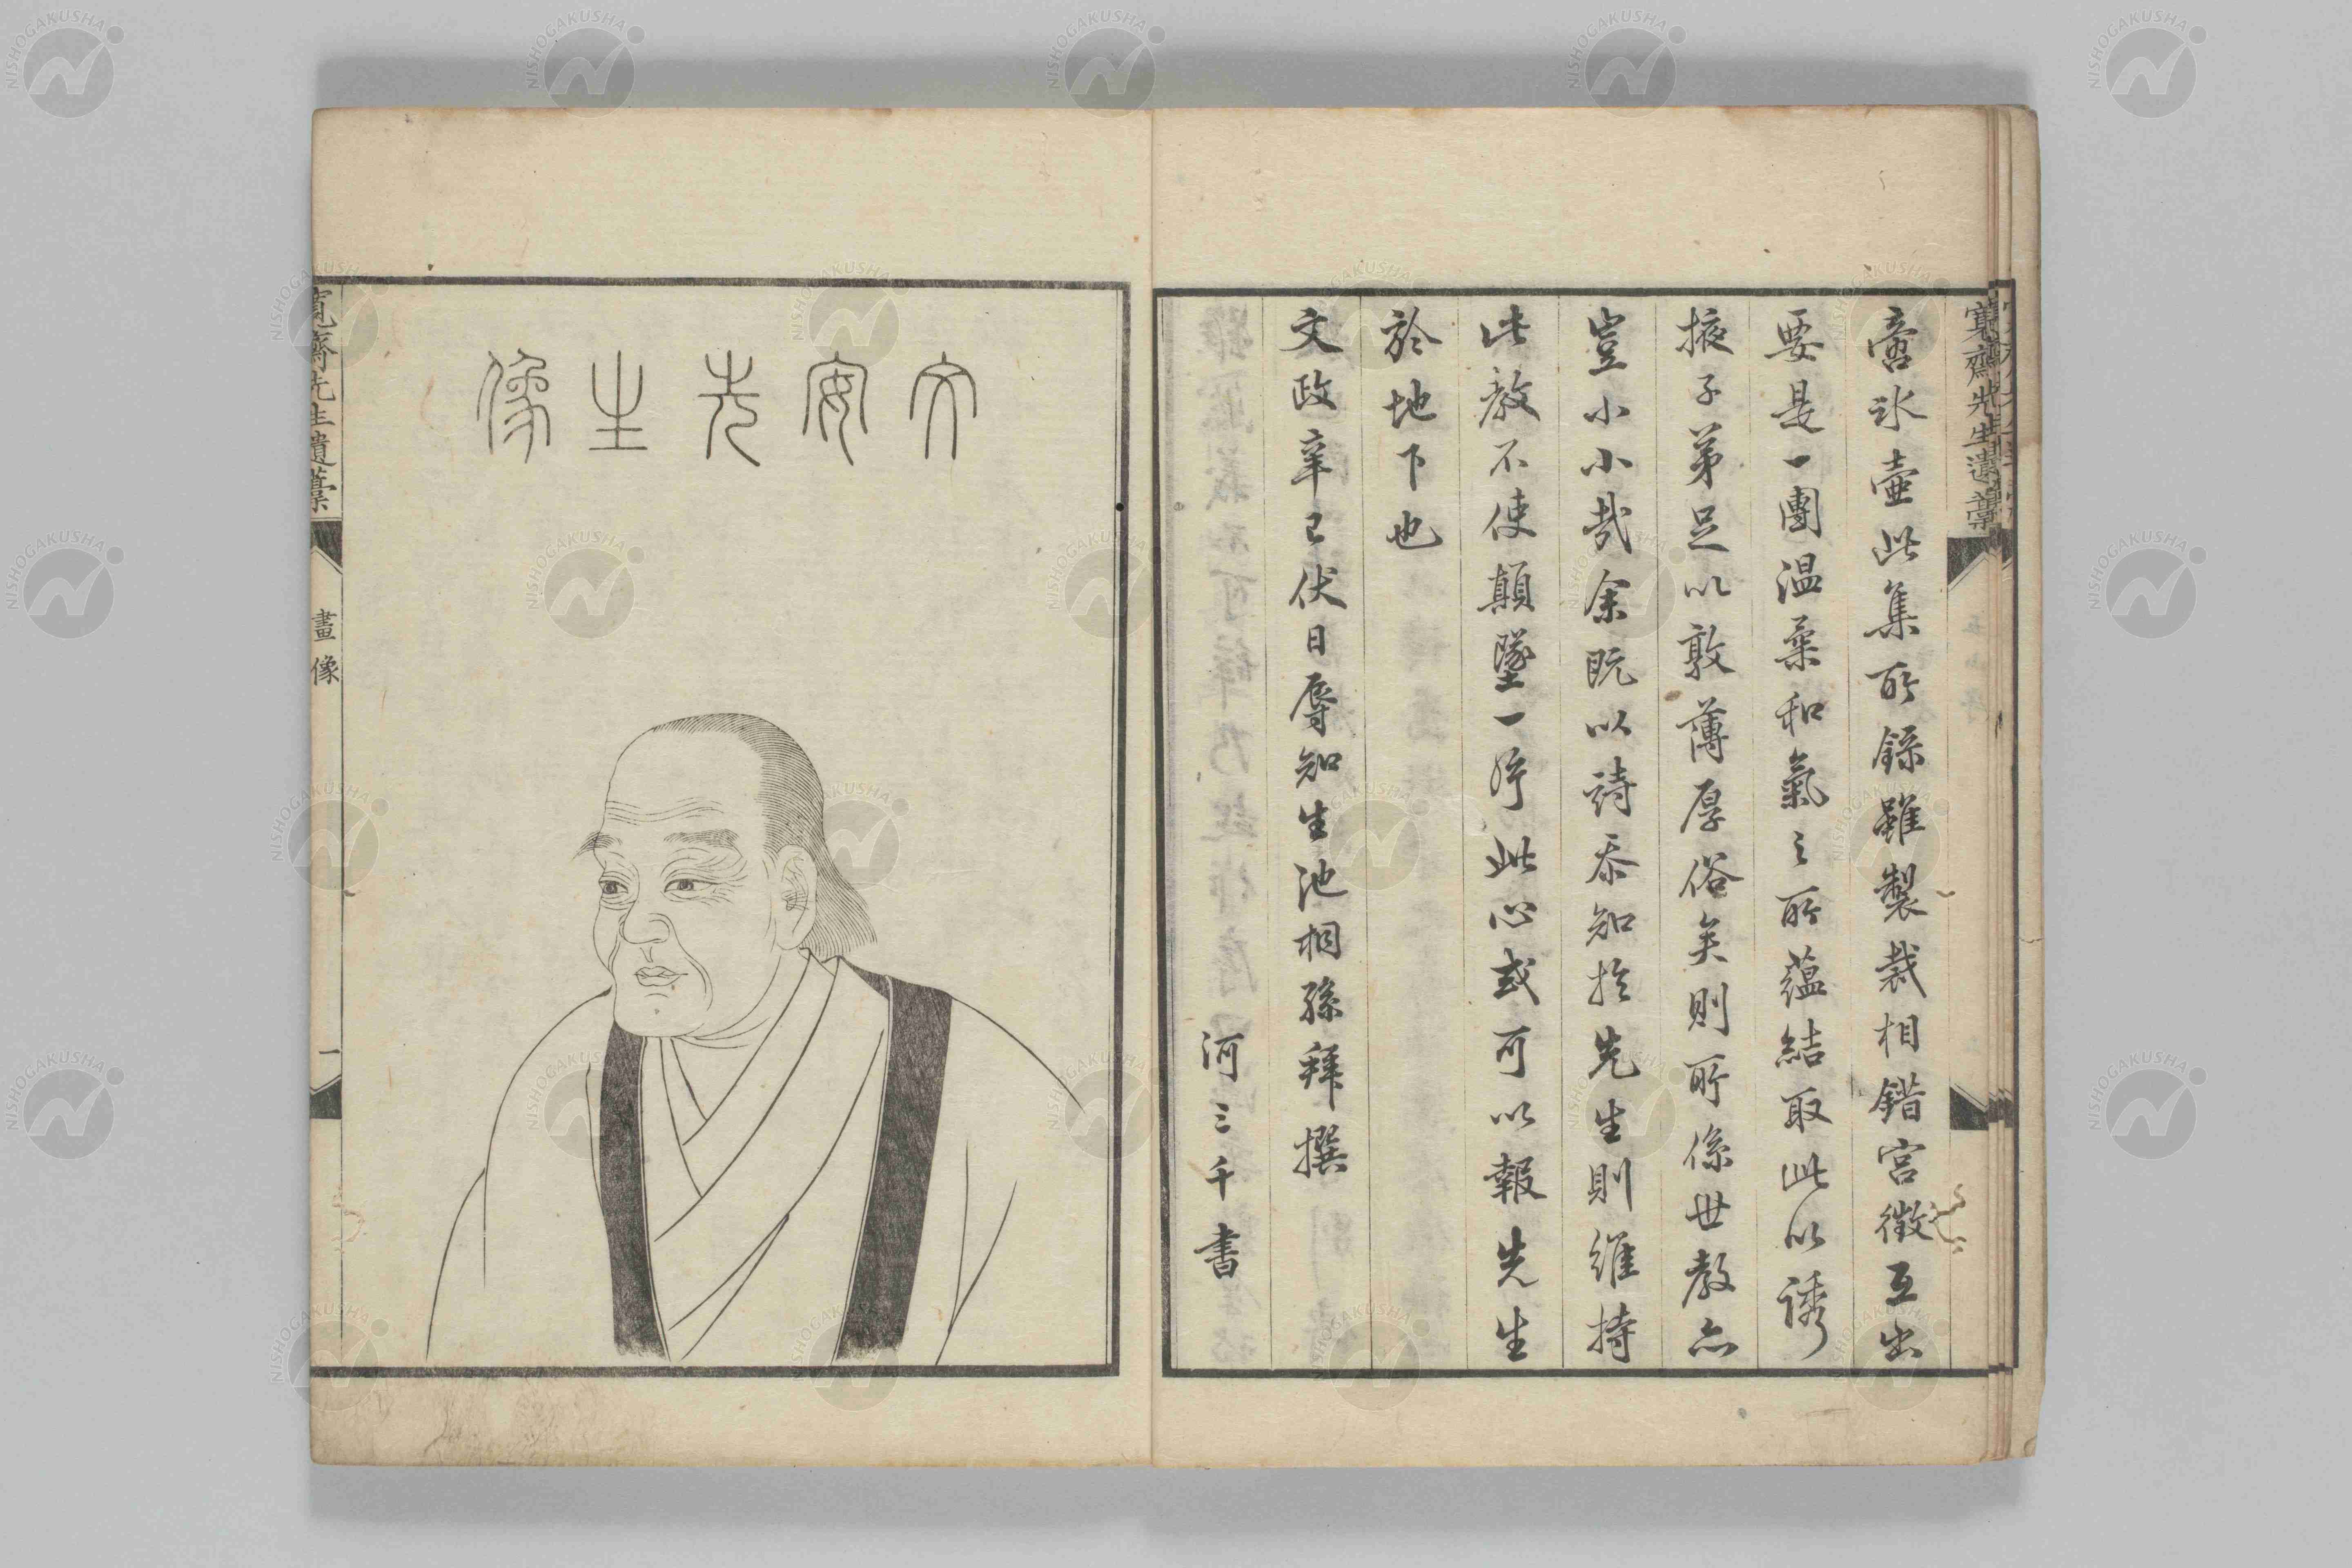 寬齋先生遺藁
啻氷壷此集所錄雖製裁相錯宮徵互出
要是一團温柔和氣之所蘊結取此以誘
掖子弟足以敦薄厚俗矣則所係世教亦
豈小小哉余既以詩忝知於先生則維持
此教不使顛墜一片此心或可以報先生
於地下也
文政辛巳伏日辱知生池桐孫拜撰
河三千書
文安先生像
寬齋先生遺藁
畫像
一
NISHOGAKUSHA